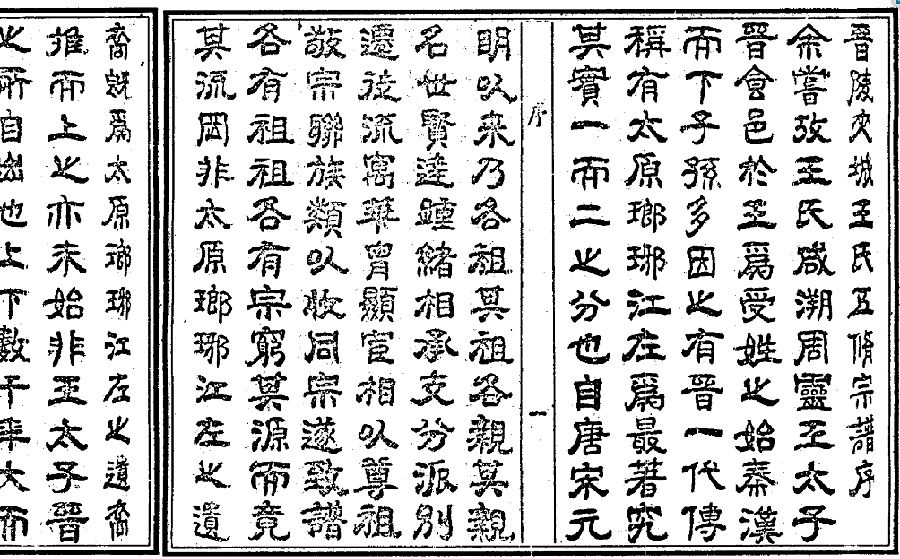 晉陵史城王氏五脩宗譜序
余嘗攷王氏咸溯周靈王太子
晉食邑於王爲受姓之始秦漢
而下子孫多因之有晉一代傳
稱有太原瑯琊江左爲最著究
其實一而二之分也自唐宋元
序
一
明以來乃各祖其祖各親其親
名世賢達踵緒相承支分派別
遷徙流寓華胄顯宦相以尊祖
敬宗聯族類以收同宗遂致譜
各有祖祖各有宗窮其源而竟
其流罔非太原瑯琊江左之遺
裔旣爲太原瑯琊江左之遺裔
推而上之亦未始非王太子晉
之所自出也上下數千年大而